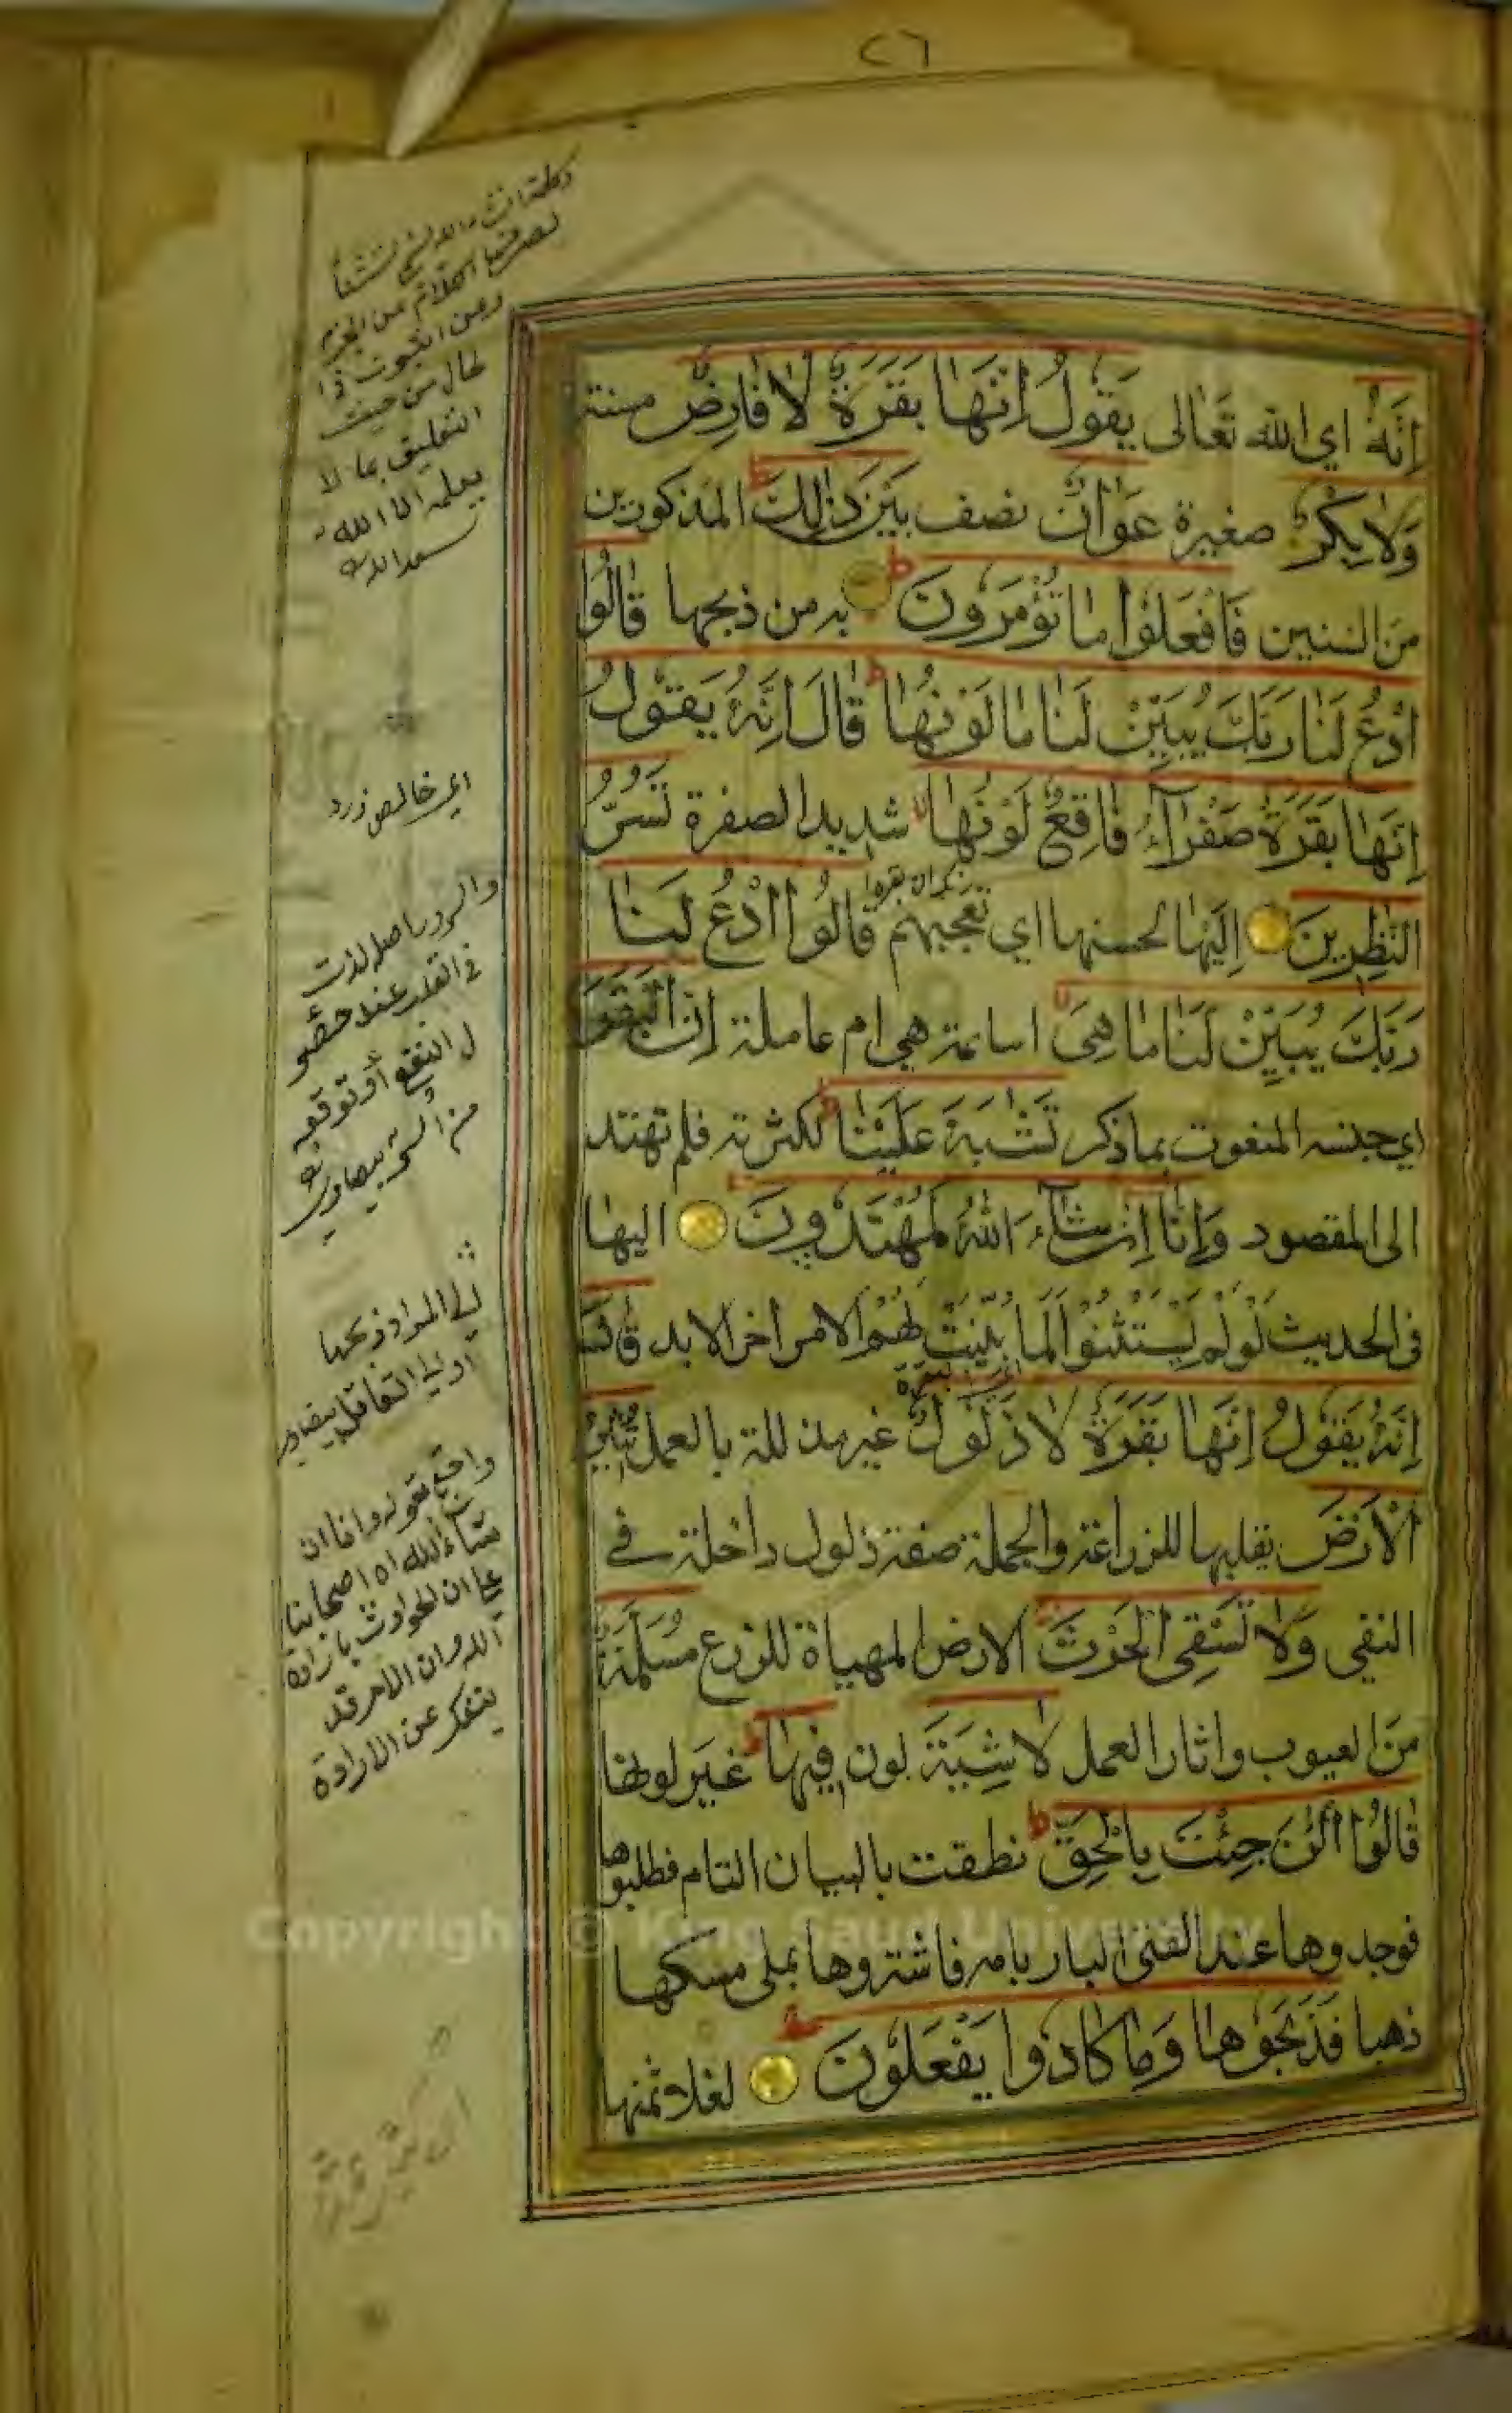 ٢٦
إِنَّهُ اي الله تَعَالى يَقُولُ إِنَّهَا بَقَرَةٌ لَا فَارِضٌ مسنة
وَلَا بِكْرٌ صغيرة عَوَانٌ نصف بَيْنَ ذَٰلِكَ المذكورين
من السنين فَافْعَلُوا مَا تُؤْمَرُونَ به من ذبحها قَالُوا
ادْعُ لَنَا رَبَّكَ يُبَيِّنْ لَنَا مَا لَوْنُهَا قَالَ إِنَّهُ يَقُولُ
إِنَّهَا بَقَرَةٌ صَفْرَآءُ فَاقِعٌ لَوْنُهَا شديد الصفرة تَسُرُّ
النّٰظِرِينَ إِلَيْهَا لحسنها اي تعجبهم قَالُوا ادْعُ لَنَا
رَبَّكَ يُبَيِّنْ لَنَا مَا هِيَ اسائمة هي ام عاملة إِنَّ الْبَقَرَ
اي جنسه المنعوت بما ذكر تَشَٰبَهَ عَلَيْنَا لكثرته فلم تهتد
الى المقصود وَإِنَّا إِنْ شَآءَ اللهُ لَمُهْتَدُونَ اليها
فى الحديث لَوْ لَمْ يَسْتَثْنُوا لَمَا بُيِّنَتْ لَهُمْ الامر اخر الابد قَالَ
إِنَّهُ يَقُولُ إِنَّهَا بَقَرَةٌ لَا ذَلُولٌ غير مذللة بالعمل تُثِيرُ
الْأَرْضَ يقلبها للزراعة والجملة صفة ذلول داخلة في
النفى وَلَا تَسْقِى الْحَرْثَ الارض المهياة للزرع مُسَلَّمَةٌ
من العيوب واثار العمل لَا شِيَةَ لون فِيهَا غَيْرَ لونها
قَالُوا الْـٰٔنَ جِئْتَ بِالْحَقِّ نطقت بالبيان التام فطلبوها
فوجدوها عند الفتى البار بامه فاشتروها بملى مسكها
ذهبا فَذَبَحُوهَا وَمَا كَادُوا يَفْعَلُونَ لغلا ثمنها
التعليق بما لا
يعلمه الا الله
سعد الدين
اي خالص زرد
والسرور اصله لذت
فى القلب عند حصو
ل النفع أو توقعه
من السر بيضاوى
الى المراد ذبحها
او الى القاتل بيضاوى
واحتج بقوله وانا ان
شاء الله اه اصحابنا
على ان الحوادث بارادة
الله وان الامر قد
ينفك عن الارادة
Copyright © King Saud University